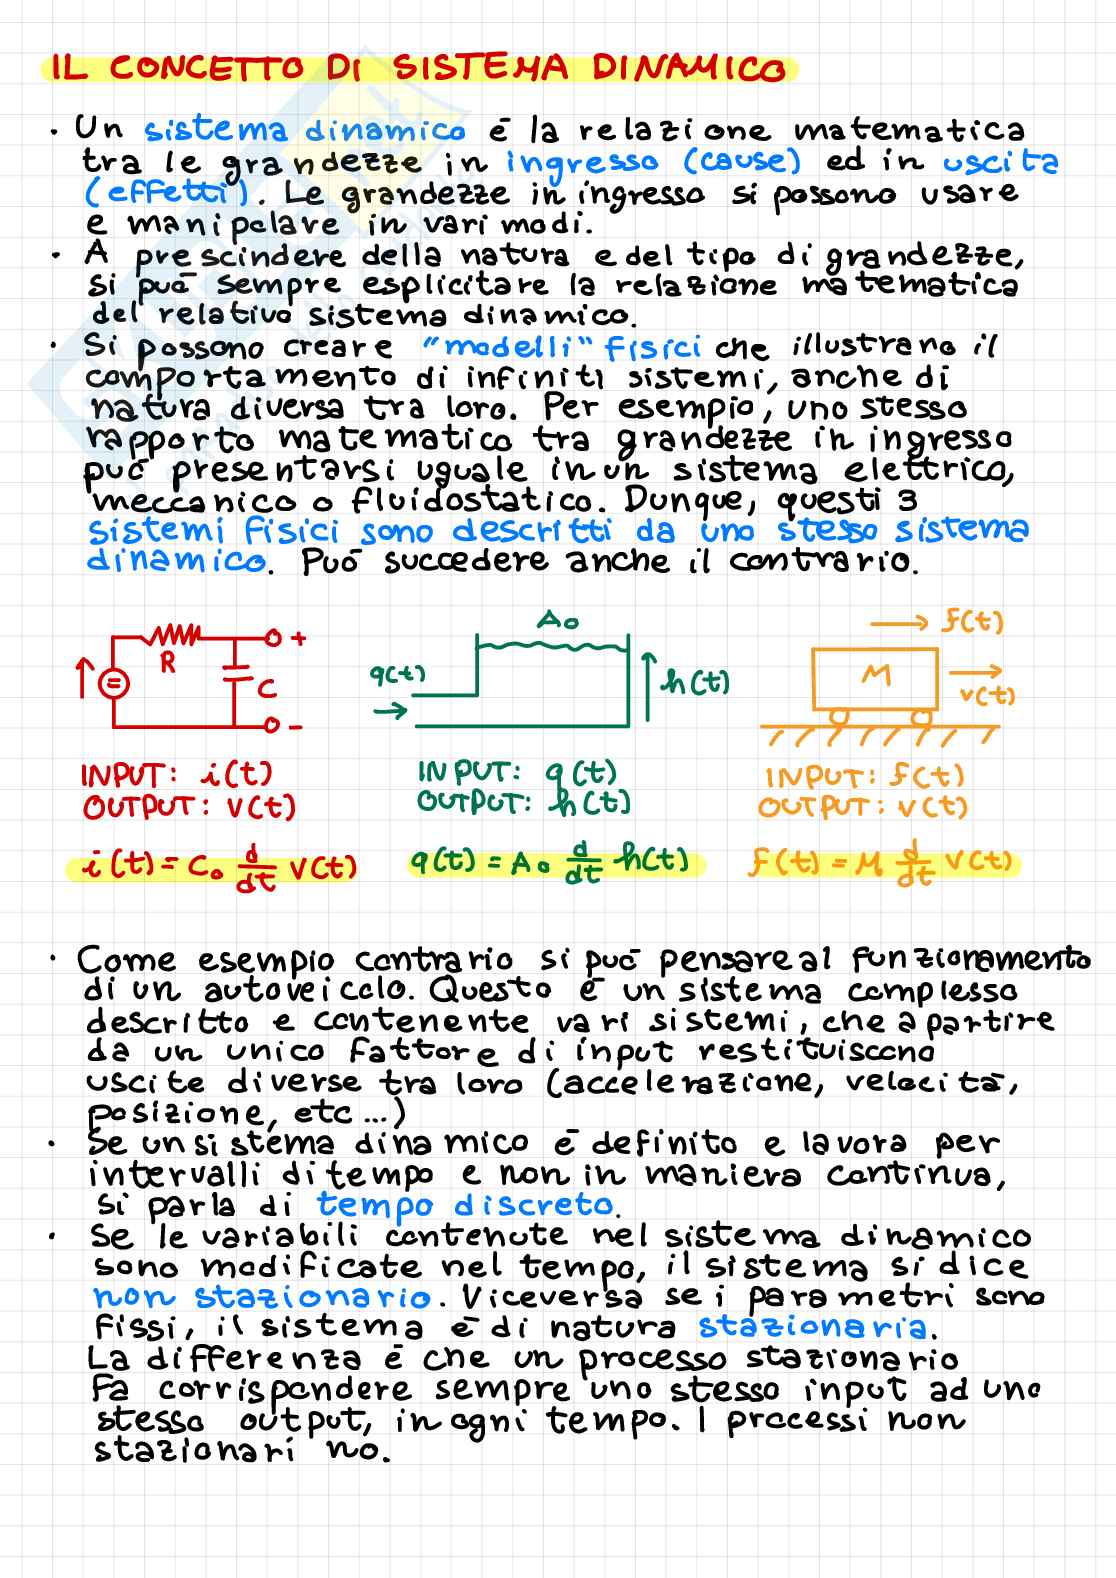 IL CONCETTO DI SISTEMA DINAMICO
· Un sistema dinamico è la relazione matematica
tra le grandezze in ingresso (cause) ed in uscita
(effetti). Le grandezze in ingresso si possono usare
e manipolare in vari modi.
· A prescindere della natura e del tipo di grandezze,
si può sempre esplicitare la relazione matematica
del relativo sistema dinamico.
· Si possono creare "modelli" fisici che illustrano il
comportamento di infiniti sistemi, anche di
natura diversa tra loro. Per esempio, uno stesso
rapporto matematico tra grandezze in ingresso
può presentarsi uguale in un sistema elettrico,
meccanico o fluidostatico. Dunque, questi 3
sistemi fisici sono descritti da uno stesso sistema
dinamico. Può succedere anche il contrario.
R C + -
A₀ q(t) h(t)
f(t) M v(t)
INPUT: i(t)
OUTPUT: v(t)
i(t) = C₀ d/dt v(t)
INPUT: q(t)
OUTPUT: h(t)
q(t) = A₀ d/dt h(t)
INPUT: f(t)
OUTPUT: v(t)
f(t) = M d/dt v(t)
· Come esempio contrario si può pensare al funzionamento
di un autoveicolo. Questo è un sistema complesso
descritto e contenente vari sistemi, che a partire
da un unico fattore di input restituiscono
uscite diverse tra loro (accelerazione, velocità,
posizione, etc...)
· Se un sistema dinamico è definito e lavora per
intervalli di tempo e non in maniera continua,
si parla di tempo discreto.
· Se le variabili contenute nel sistema dinamico
sono modificate nel tempo, il sistema si dice
non stazionario. Viceversa se i parametri sono
fissi, il sistema è di natura stazionaria.
La differenza è che un processo stazionario
fa corrispondere sempre uno stesso input ad uno
stesso output, in ogni tempo. I processi non
stazionari no.